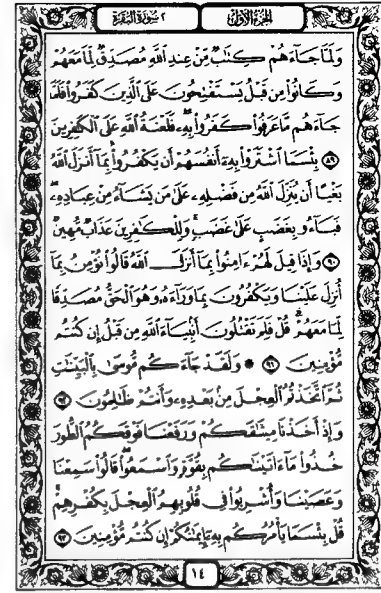 الجزء الأول
٢ سورة البقرة
وَلَمَّا جَآءَهُمْ كِتَٰبٌ مِّنْ عِندِ ٱللَّهِ مُصَدِّقٌ لِّمَا مَعَهُمْ
وَكَانُوا۟ مِن قَبْلُ يَسْتَفْتِحُونَ عَلَى ٱلَّذِينَ كَفَرُوا۟ فَلَمَّا
جَآءَهُم مَّا عَرَفُوا۟ كَفَرُوا۟ بِهِۦ ۚ فَلَعْنَةُ ٱللَّهِ عَلَى ٱلْكَٰفِرِينَ
٨٩ بِئْسَمَا ٱشْتَرَوْا۟ بِهِۦٓ أَنفُسَهُمْ أَن يَكْفُرُوا۟ بِمَآ أَنزَلَ ٱللَّهُ
بَغْيًا أَن يُنَزِّلَ ٱللَّهُ مِن فَضْلِهِۦ عَلَىٰ مَن يَشَآءُ مِنْ عِبَادِهِۦ ۖ
فَبَآءُو بِغَضَبٍ عَلَىٰ غَضَبٍ ۚ وَلِلْكَٰفِرِينَ عَذَابٌ مُّهِينٌ
٩٠ وَإِذَا قِيلَ لَهُمْ ءَامِنُوا۟ بِمَآ أَنزَلَ ٱللَّهُ قَالُوا۟ نُؤْمِنُ بِمَآ
أُنزِلَ عَلَيْنَا وَيَكْفُرُونَ بِمَا وَرَآءَهُۥ وَهُوَ ٱلْحَقُّ مُصَدِّقًا
لِّمَا مَعَهُمْ ۗ قُلْ فَلِمَ تَقْتُلُونَ أَنۢبِيَآءَ ٱللَّهِ مِن قَبْلُ إِن كُنتُم
مُّؤْمِنِينَ ٩١ ۞ وَلَقَدْ جَآءَكُم مُّوسَىٰ بِٱلْبَيِّنَٰتِ
ثُمَّ ٱتَّخَذْتُمُ ٱلْعِجْلَ مِنۢ بَعْدِهِۦ وَأَنتُمْ ظَٰلِمُونَ ٩٢
وَإِذْ أَخَذْنَا مِيثَٰقَكُمْ وَرَفَعْنَا فَوْقَكُمُ ٱلطُّورَ
خُذُوا۟ مَآ ءَاتَيْنَٰكُم بِقُوَّةٍ وَٱسْمَعُوا۟ ۖ قَالُوا۟ سَمِعْنَا
وَعَصَيْنَا وَأُشْرِبُوا۟ فِى قُلُوبِهِمُ ٱلْعِجْلَ بِكُفْرِهِمْ ۚ
قُلْ بِئْسَمَا يَأْمُرُكُم بِهِۦٓ إِيمَٰنُكُمْ إِن كُنتُم مُّؤْمِنِينَ ٩٣
١٤